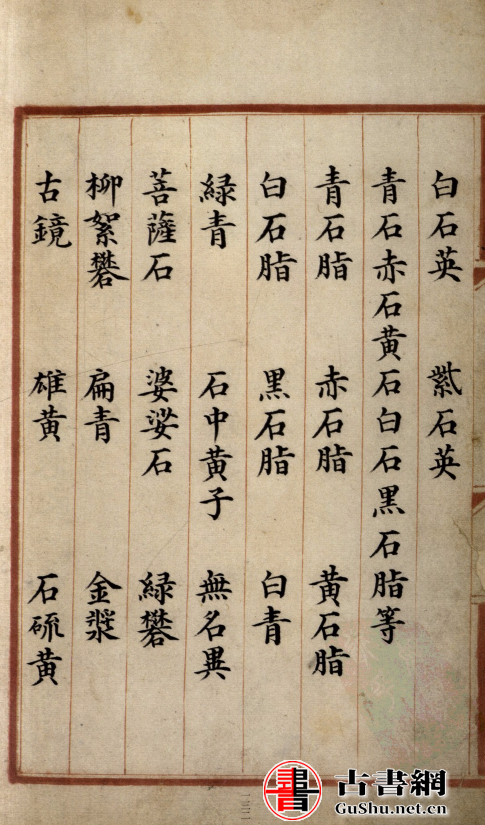 白石英 紫石英
青石赤石黄石白石黒石脂等
青石脂 赤石脂 黄石脂
白石脂 黒石脂 白青
緑青 石中黄子 無名異
菩薩石 婆娑石 緑礬
柳絮礬 扁青 金漿
古鏡 雄黄 石硫黄
書 古書網
GuShu.net.cn